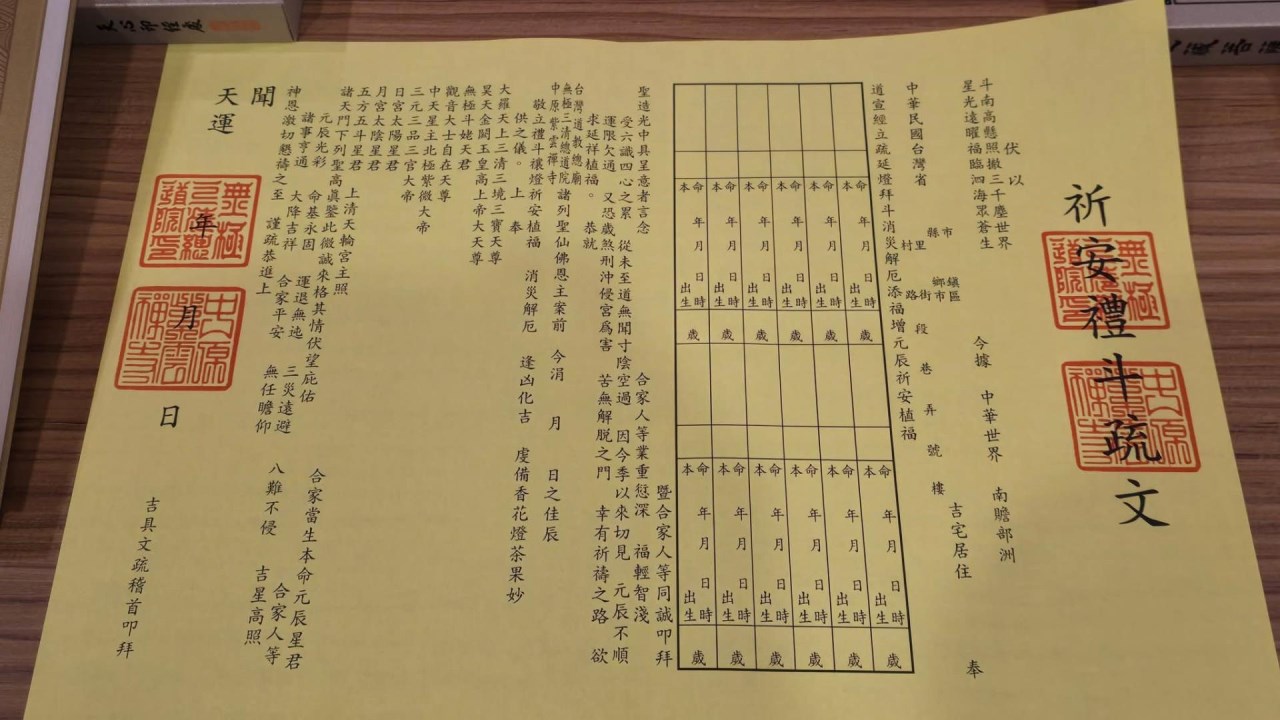 祈安禮斗疏文
伏以
斗南高懸照撤三千塵世界
星光遠曜福臨泗海眾蒼生
今據 中華世界 南贍部洲
中華民國台灣省 縣市 鄉鎮市區 村里 路街 段 巷 弄 號 樓 吉宅居住 奉
道宣經立疏延燈拜斗消災解厄添福增元辰祈安植福
本命 年 月 日 時 出生 歲
本命 年 月 日 時 出生 歲
本命 年 月 日 時 出生 歲
本命 年 月 日 時 出生 歲
本命 年 月 日 時 出生 歲
本命 年 月 日 時 出生 歲
本命 年 月 日 時 出生 歲
本命 年 月 日 時 出生 歲
本命 年 月 日 時 出生 歲
本命 年 月 日 時 出生 歲
本命 年 月 日 時 出生 歲
本命 年 月 日 時 出生 歲
暨合家人等同誠叩拜
聖造光中具呈意者言念 合家人等業重愆深 福輕智淺
受六識四心之累 從未至道無聞寸陰空過 因今季以來切見 元辰不順
運限欠通 又恐歲煞刑沖侵宮為害 苦無解脫之門 幸有祈禱之路 欲
求延祥植福。 恭就
台灣道教總廟
無極三清總道院
中原紫雲禪寺
諸列聖仙佛恩主案前 今涓 月 日之佳辰
敬立禮斗禳燈祈安植福 消災解厄 逢凶化吉 虔備香花燈茶果妙
供之儀。 上 奉
大羅天上三清三境三寶天尊
昊天金闕玉皇高上帝大天尊
無極斗姥天君
觀音大士自在天尊
中天星主北極紫微大帝
三元三品三官大帝
日宮太陽星君
月宮太陰星君
五方五斗星君 上清天輪宮主照
諸天門下列聖高真鑒此微誠來格其情伏望庇佑 合家當生本命元辰星君
元辰光彩 命基永固 運退無迍 三災遠避 合家人等
諸事亨通 大降吉祥 合家平安 無任瞻仰 八難不侵 吉星高照
神恩激切懇禱之至 謹疏恭進上
聞
天運 年 月 日 吉具文疏稽首叩拜
無極三清總道院印
中原紫雲禪寺
無極三清總道院印
中原紫雲禪寺